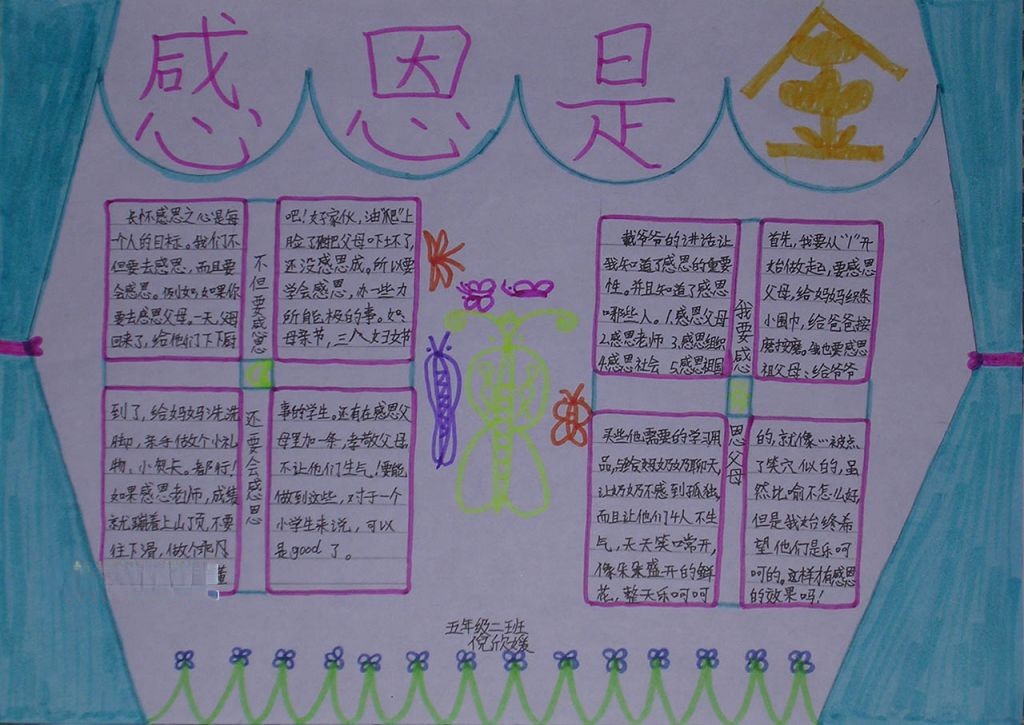 感恩是金
长怀感恩之心是每
个人的目标。我们不
但要去感恩，而且要
会感恩。例如如果你
要去感恩父母。一天，父母
回来了，给他们下下厨
不但要感恩
吧！好家伙，油"爬"上
脸了把父母吓坏了，
还没感恩成。所以要
学会感恩，办一些力
所能极的事。如：
母亲节，三八妇女节
到了，给妈妈洗洗
脚，亲手做个小礼
物、小贺卡。都好！
如果感恩老师，成绩
就蹦着上山了顶，不要
往下滑，做个乖
懂
还要会感恩
事的学生。还有在感恩父
母里加一条，孝敬父母，
不让他们生气！要能
做到这些，对于一个
小学生来说，可以
是good了。
戴爷爷的讲话让
我知道了感恩的重要
性。并且知道了感恩
哪些人。1.感恩父母
2.感恩老师 3.感恩组织
4.感恩社会 5.感恩祖国
我要感
首先，我要从"1"开
始做起，要感恩
父母，给妈妈织条
小围巾，给爸爸按
磨按磨。我也要感恩
祖父母：给爷爷
买些他需要的学习用
品，与给奶奶聊天，
让奶奶不感到孤独。
而且让他们4人不生
气，天天笑口常开，
像朵朵盛开的鲜
花，整天乐呵呵
恩父母
的，就像…被点
了笑穴似的，虽
然比喻不怎么好，
但是我始终希
望他们是乐呵
呵的。这样才有感恩
的效果吗！
五年级二班
倪欣媛